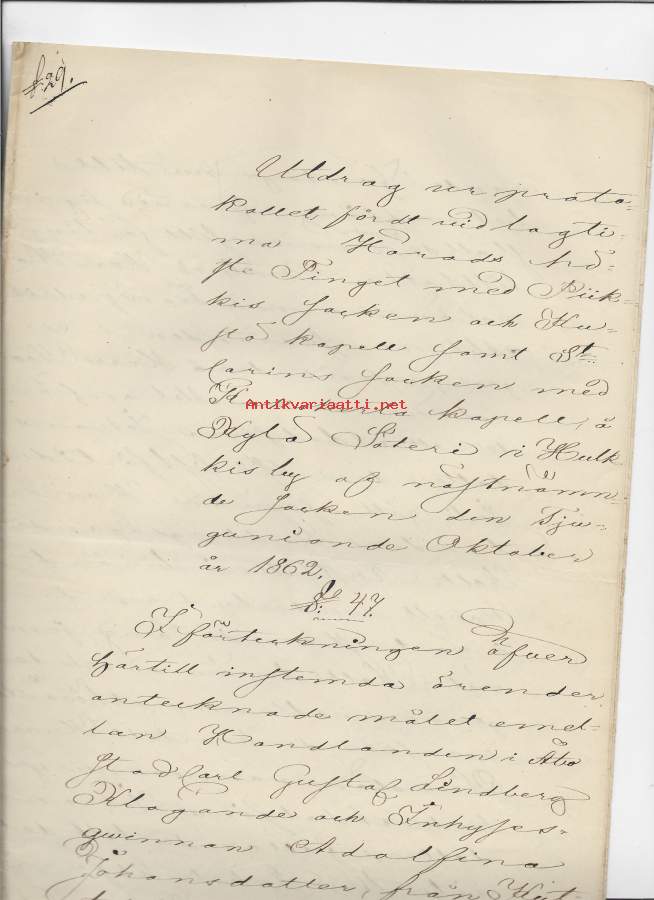 29.
Utdrag ur proto-
kollet, fördt vid lagti-
ma Härads Hö-
ste Tinget med Piik-
kis socken och Ku-
stö kapell samt St.
Carins socken med
kapell, å
Antikvariaatti.net
Kylö Säteri i Hulk
kis by af näst nämn-
de socken den Tju-
guni​onde Oktober
år 1862.
§ 47.
I förteckningen öfver
härtill instemda ärender
antecknade målet emel-
lan Handlanden i Åbo
stad Carl Gustaf Lindberg
Klagande och Inhyses-
qwinnan Adolfina
Johansdotter, från